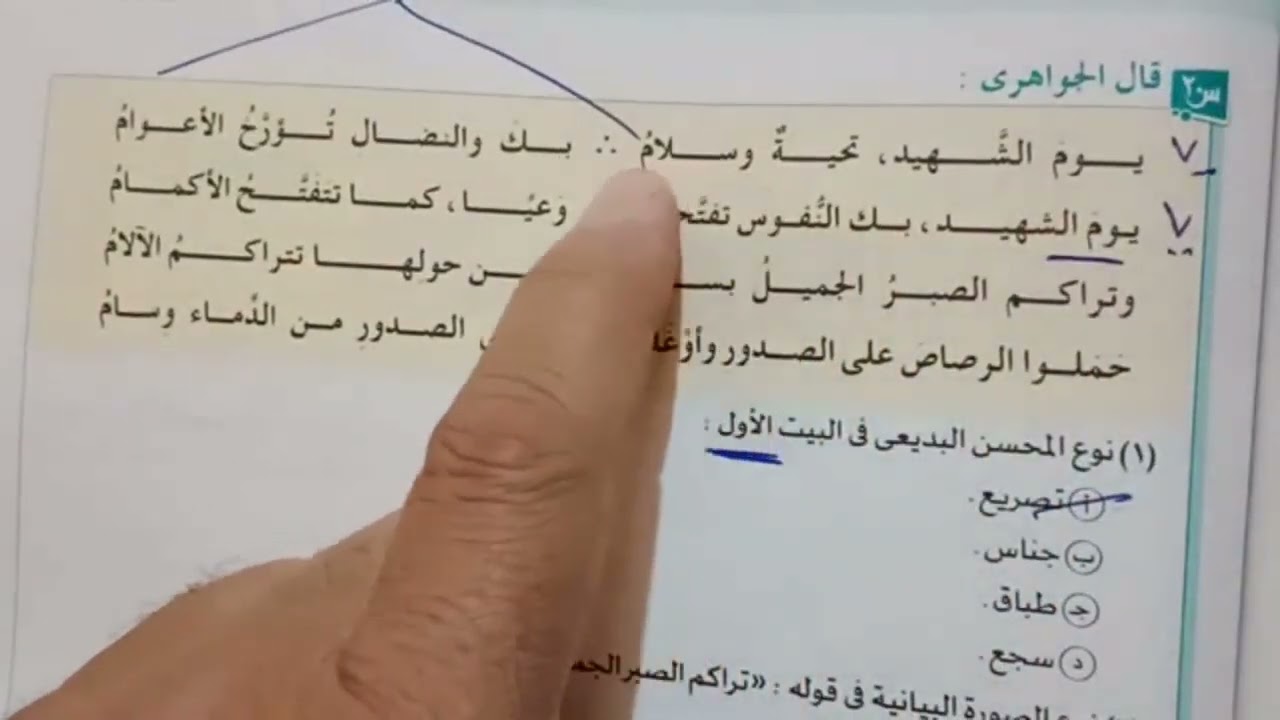 س٢ قال الجواهرى :
يـومَ الشَّـهيد، تحيـةٌ وسـلامُ ∴ بـكَ والنضـال تُـؤرَّخُ الأعـوامُ
يـومَ الشهيـد، بـك النُّفـوس تفتَّح وَعيًـا، كمـا تتفَتَّـحُ الأكمـامُ
وتراكـم الصبـرُ الجميـلُ حولِهـا تتراكـمُ الآلامُ
حَمَلـوا الرصاصَ على الصـدور الصـدورِ مـن الدِّمـاء وِسـامُ
(١) نوع المحسن البديعى فى البيت الأول :
أ تصريع.
ب جناس.
جـ طباق.
د سجع.
الصورة البيانية فى قوله : «تراكم الصبر